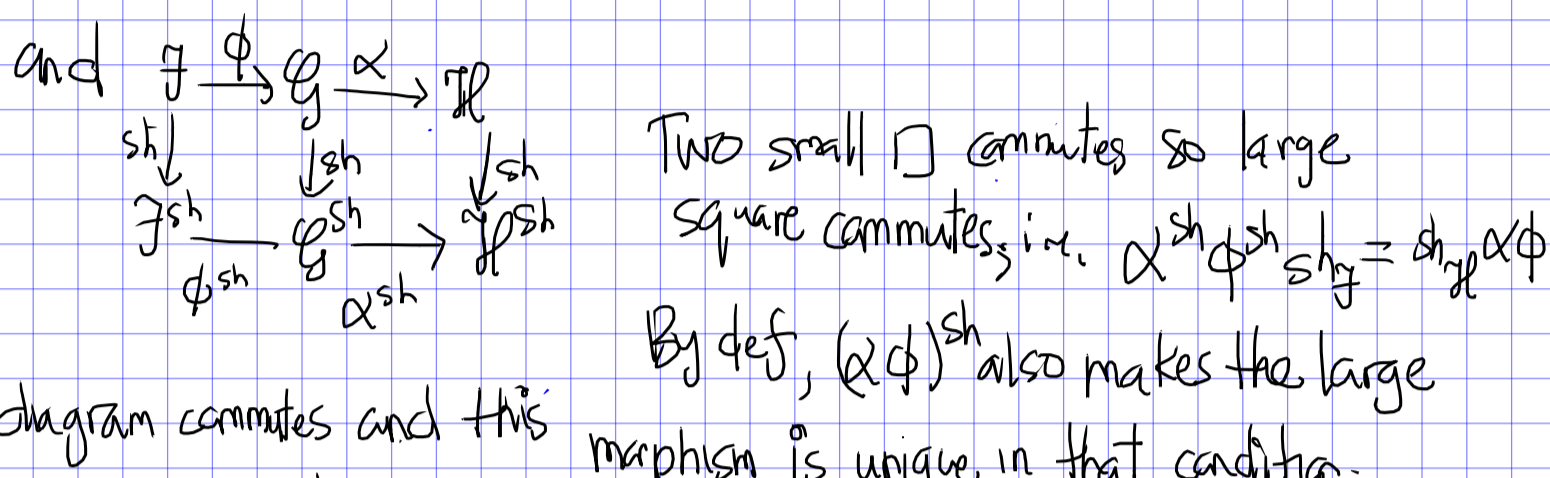 and F →ϕ G →α H
sh↓ ↓sh ↓sh
F^sh — G^sh → H^sh
ϕ^sh α^sh
Two small □ commutes so large
square commutes, i.e. α^sh ϕ^sh sh_F = sh_H αϕ
By def, (αϕ)^sh also makes the large
diagram commutes and this morphism is unique in that condition.